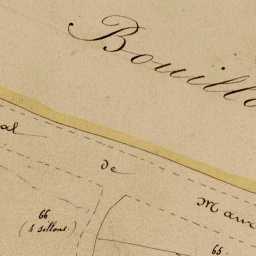 Bouillo
al
de
Mauv
66
(5 sillons.)
65